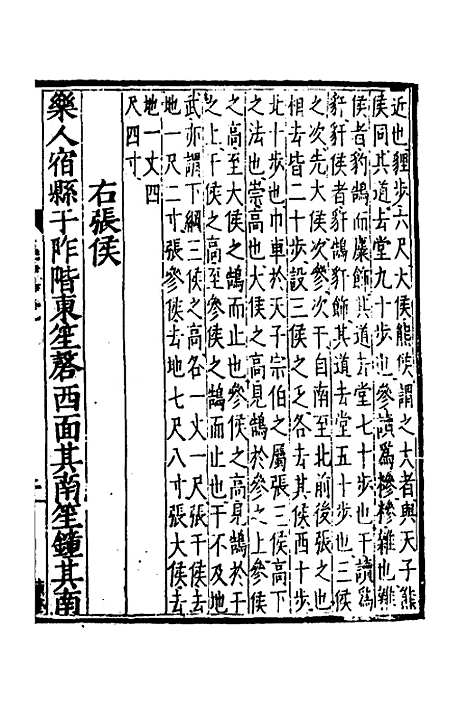 近也貍步六尺大侯熊侯謂之大者與天子熊
侯同其道去堂九十步也參讀爲糝糝雜也雜
侯者豹鵠而麋飾其道去堂七十步也干讀爲
豻豻侯者豻鵠豻飾其道去堂五十步也三侯
之次先大侯次參次干自南至北前後張之也
相去皆二十步設三侯之乏各去其侯西十步
北十步也巾車於天子宗伯之屬張三侯高下
之法也崇高也大侯之高見鵠於參之上參侯
之高至大侯之鵠而止也參侯之高見鵠於干
之上干侯之高至參侯之鵠而止也干不及地
武亦謂下綱三侯之高各一丈一尺張干侯去
地一尺二寸張參侯去地七尺八寸張大侯去
地一丈四
尺四寸
右張侯
樂人宿縣于阼階東笙磬西面其南笙鐘其南